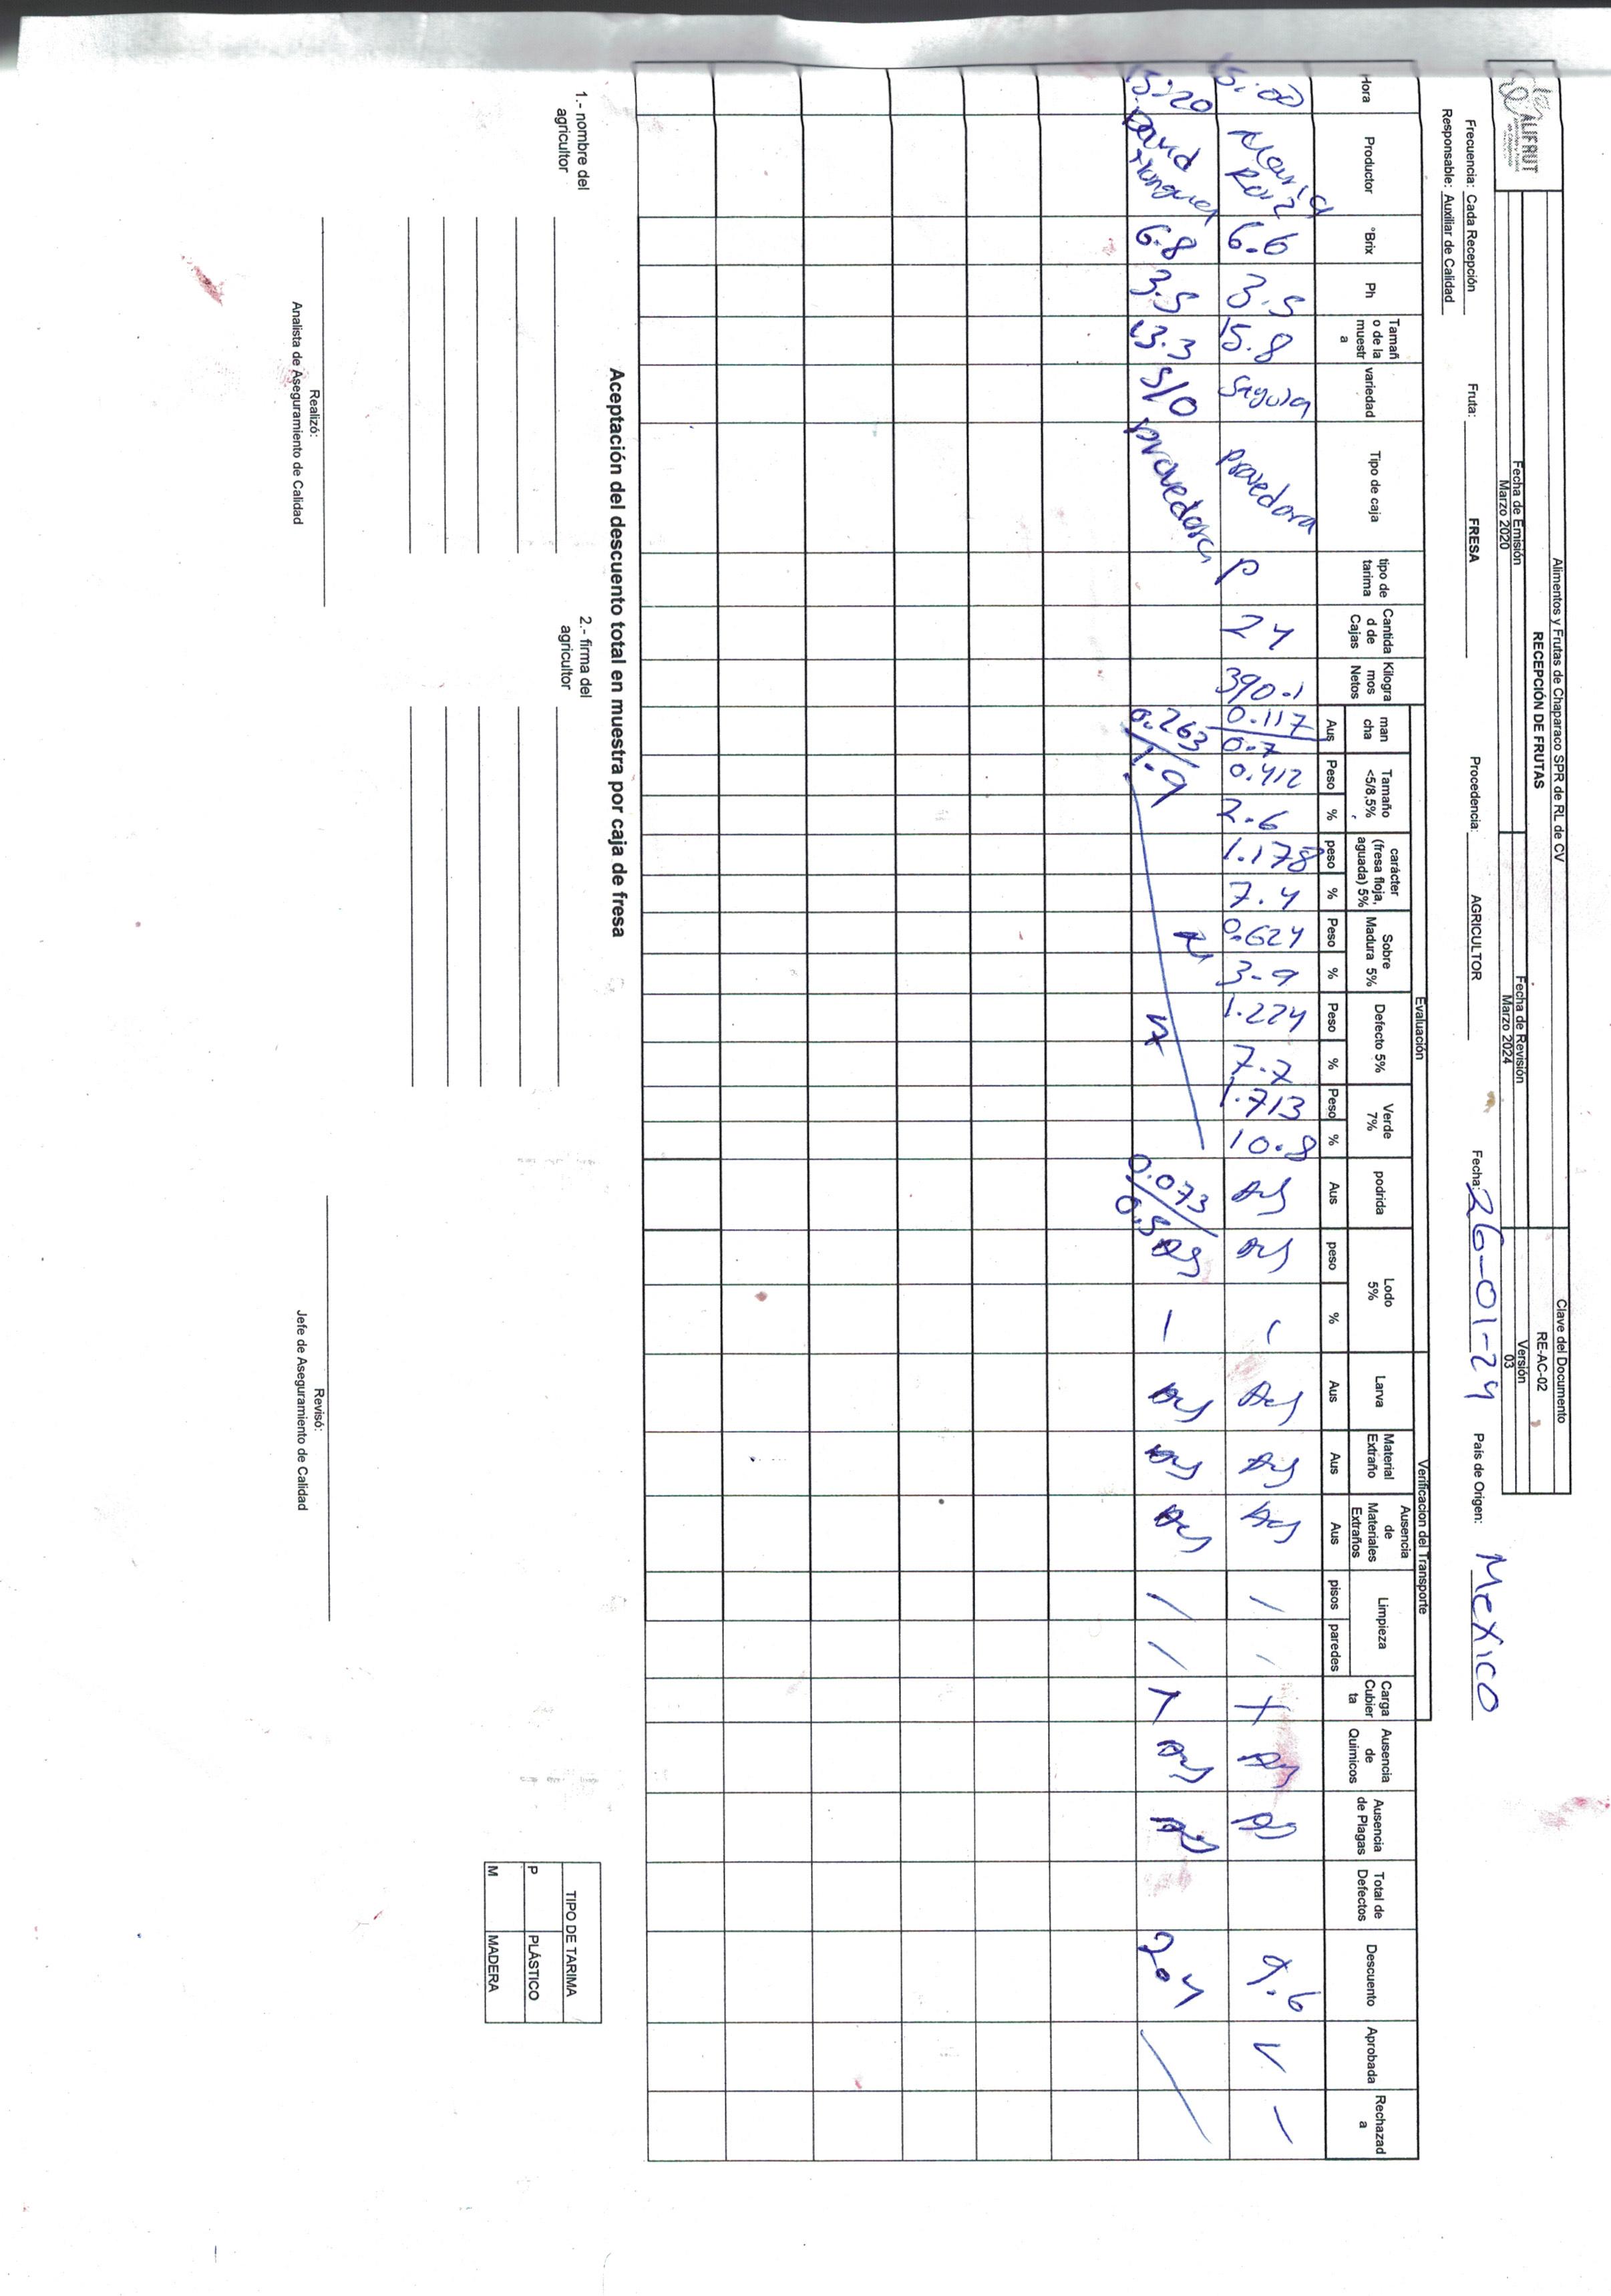 ALIFRUT
Alimentos y Frutas de Chaparaco SPR de RL de CV
Clave del Documento
RECEPCIÓN DE FRUTAS
RE-AC-02
Fecha de Emisión
Fecha de Revisión
Versión
Marzo 2020
Marzo 2024
03
Frecuencia: Cada Recepción Fruta: FRESA Procedencia: AGRICULTOR Fecha: 26-01-24 País de Origen: Mexico
Responsable: Auxiliar de Calidad
Evaluación
Verificacion del Transporte
Hora
Productor
°Brix
Ph
Tamañ
o de la
muestr
a
variedad
Tipo de caja
tipo de
tarima
Cantida
d de
Cajas
Kilogra
mos
Netos
man
cha
Tamaño
<5/8,5%
carácter
(fresa floja,
aguada) 5%
Sobre
Madura 5%
Defecto 5%
Verde
7%
podrida
Lodo
5%
Larva
Material
Extraño
Ausencia
de
Materiales
Extraños
Limpieza
Carga
Cubier
ta
Ausencia
de
Quimicos
Ausencia
de Plagas
Total de
Defectos
Descuento
Aprobada
Rechazad
a
Aus Peso % peso % Peso % Peso % Peso % Aus peso % Aus Aus Aus pisos paredes
Maria
6.6 3.5 15.8 Provedora P 24 390.1 0.117/0.7 0.412 2.6 1.178 7.4 0.624 3.9 1.224 7.7 1.713 10.8 Aus Aus - Aus Aus Aus / / Aus Aus 9.6 ✓ -
David
6.8 3.5 13.3 S/O provedora 0.263/1.9 0.073/0.5 Aus - Aus Aus Aus / / Aus Aus 2.4 /
Aceptación del descuento total en muestra por caja de fresa
1.- nombre del
agricultor
2.- firma del
agricultor
TIPO DE TARIMA
P PLÁSTICO
M MADERA
Realizó:
Analista de Aseguramiento de Calidad
Revisó:
Jefe de Aseguramiento de Calidad